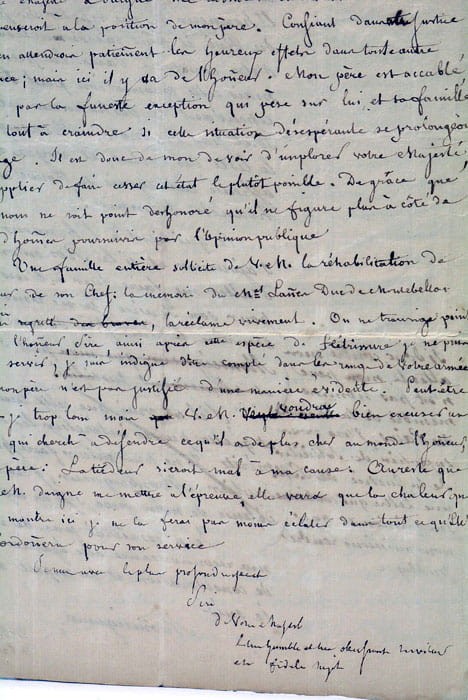 à la position de mon père. Confiant dans sa Justice
en attendrois patiemment les heureux effets dans toute autre
; mais ici il y va de l'honneur. Mon père est accablé
par la funeste exception qui pèse sur lui et sa famille
tout à craindre si cette situation désespérante se prolongeoit
. Il est donc de mon devoir d'implorer votre Majesté
supplier de faire cesser cet état le plutot possible. De grâce que
nom ne soit point deshonoré qu'il ne figure plus à côté de
d'hommes poursuivis par l'Opinion publique
Une famille entière sollicite de V. M. la réhabilitation de
de son Chef: la mémoire du Mal Lannes Duc de Montebello
regretté des braves, la réclame vivement. On ne transige point
l'honneur, Sire, aussi après cette espèce de flétrissure je ne puis
servir; je suis indigne d'être compté dans les rangs de votre armée
mon père n'est pas justifié d'une manière évidente. Peut-être
je trop loin mais V. M. voudra bien excuser un
qui cherche à défendre ce qu'il a de plus cher au monde l'honneur
père: La tiédeur sieroit mal à ma cause: Au reste que
M. daigne me mettre à l'épreuve, elle verra que la chaleur que
montre ici je ne la ferai pas moins éclater dans tout ce qu'elle
ordonnera pour son service
Je suis avec le plus profond respect
Sire
de Votre Majesté
Le très humble et très obéissant serviteur
et fidèle sujet